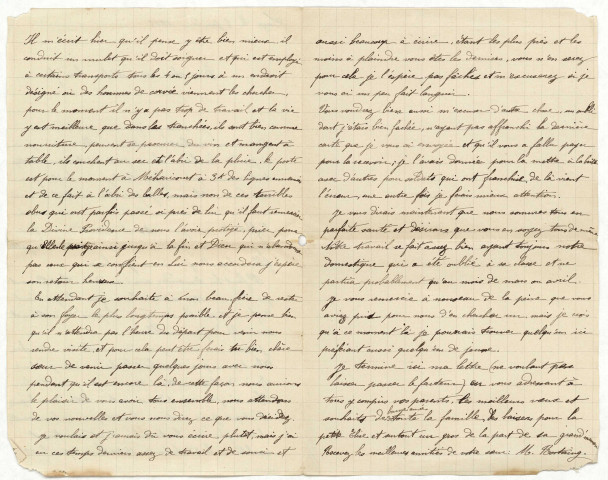 Il m'écrit hier qu'il pense y être bien mieux il
conduit un mulet qu'il doit soigner et qui est employé
à certains transports tous les 4 ou 5 jours à un endroit
désigné où des hommes de corvée viennent les chercher,
pour le moment il n'y a pas trop de travail et la vie
y est meilleure que dans les tranchées, ils sont bien comme
nourriture peuvent se procurer du vin et mangent à
table, ils couchent au sec et à l'abri de la pluie, le poste
est pour le moment à à 3 k des lignes ennemies
et de ce fait à l'abri des balles, mais non de ces terribles
obus qui ont parfois passé si près de lui qu'il faut remercier
la Divine Providence de nous l'avoir protégé, priez pour
qu' jusqu'à la fin et Dieu qui n'abandonne
pas ceux qui se confient en Lui nous accordera j'espère
son retour heureux.
En attendant je souhaite à mon beau frère de rester
à son foyer le plus longtemps possible et je pense bien
qu'il n'attendra pas l'heure du départ pour venir nous
rendre visite, et pour cela peut être frais tu bien, chère
sœur de venir passer quelques jours avec nous
pendant qu'il est encore là, de cette façon nous aurions
le plaisir de vous avoir tous ensemble, nous attendons
de vos nouvelles et vous nous direz ce que vous décidez.
Je voulais et j'aurais dû vous écrire plutôt, mais j'ai
eu ces temps derniers assez de travail et de souci et
aussi beaucoup à écrire, étant les plus près et les
moins à plaindre vous êtes les derniers, vous n'en serez
pour cela je l'espère pas fâchés et m'excuserez si je
vous ai un peu fait languir.
Vous voudrez bien aussi m'excuser d'autre chose,
j'étais bien fâchée, n'ayant pas affranchi la dernière
carte que je vous ai envoyée et qu'il vous a fallu payer
pour la recevoir, je l'avais donnée pour la mettre à la boîte
avec d'autres pour soldats qui ont franchise, de là vient
l'erreur, une autre fois je ferai mieux attention.
Je vous dirais maintenant que nous sommes tous en
parfaite santé et désirons que vous en soyez tous de même
Notre travail se fait assez bien ayant toujours notre
domestique qui a été oublié à sa classe et ne
partira probablement qu'au mois de mars ou avril.
Je vous remercie à nouveau de la peine que vous
aviez pris pour nous d'en chercher un mais je crois
qu'à ce moment là je pourrais trouver quelqu'un ici
préférant aussi quelqu'un de jeune.
Je termine ici ma lettre (ne voulant pas
laisser passer le facteur) en vous adressant à
tous y compris vos parents, les meilleurs vœux et
souhaits de toute la famille, des baisers pour la
petite Elise et autant un gros de la part de sa grand'mère.
Recevez les meilleures amitiés de votre sœur. M.